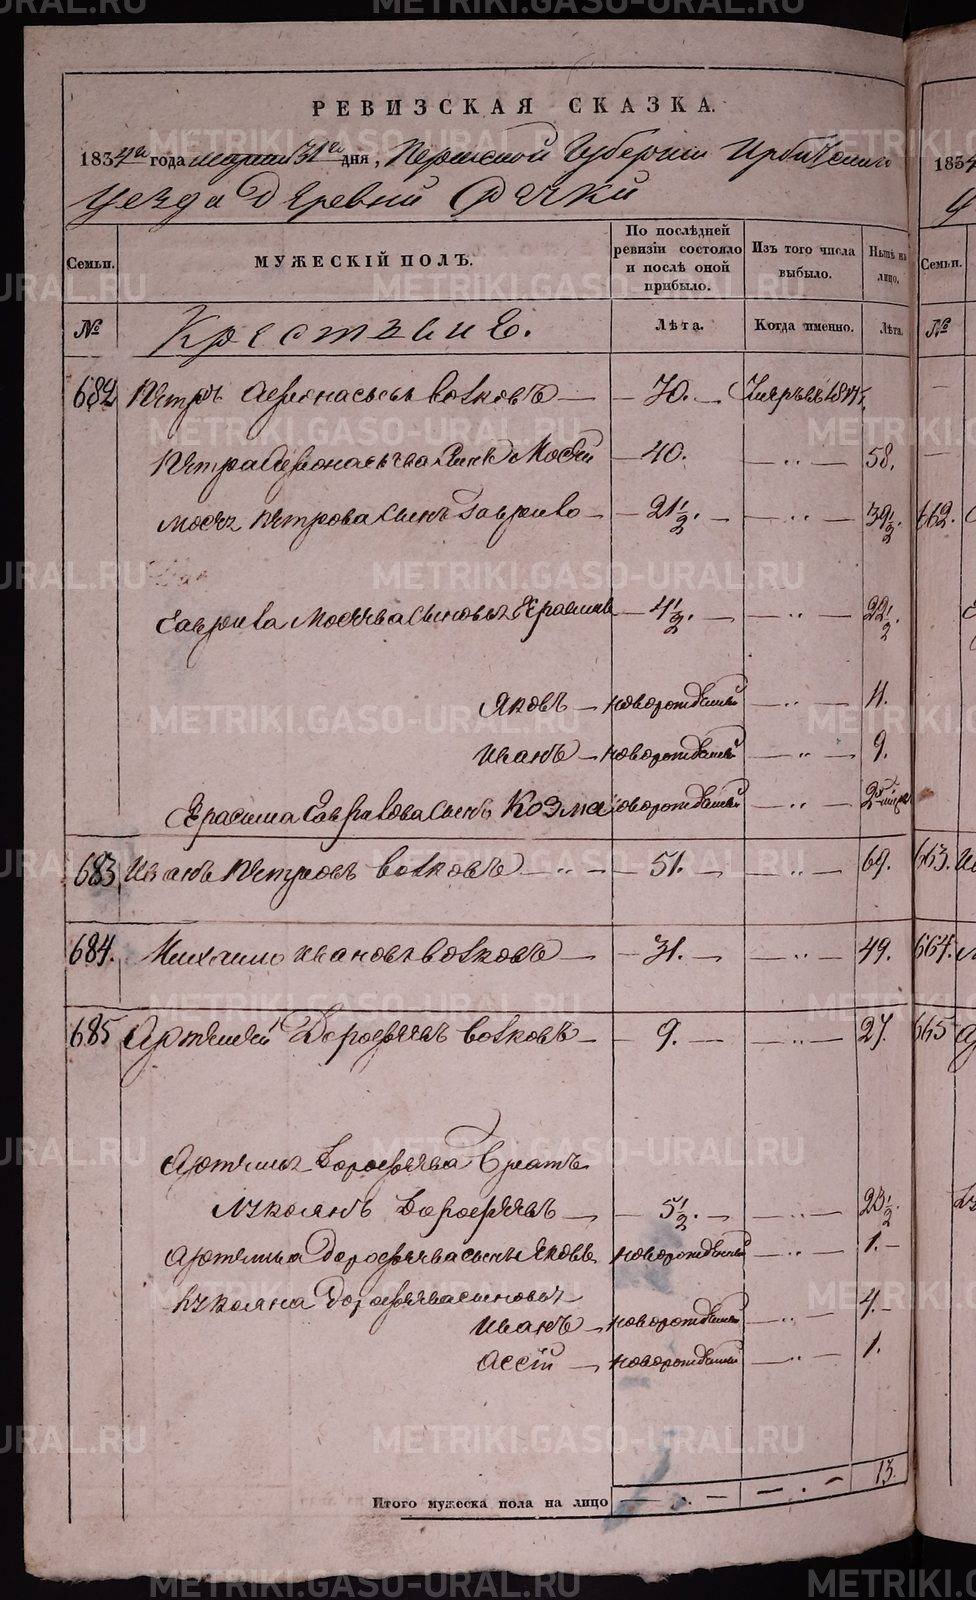 METRIKI.GASO-URAL.RU
РЕВИЗСКАЯ СКАЗКА.
1834го года марта 31го дня, Пермской Губернии Ирбитскаго
уезда Деревни Речки
Семьи.
МУЖЕСКІЙ ПОЛЪ.
По послѣдней ревизіи состояло и послѣ оной прибыло.
Изъ того числа выбыло.
Нынѣ на лицо.
№
Крестьяне.
Лѣта.
Когда именно.
Лѣта.
682 Петръ Афонасьевъ Волковъ — 70. —
Петра Афонасьева сынъ Мосей — 40. — " — 58.
Мосея Петрова сынъ Гаврило — 21 1/2. — " — 39 1/2.
Гаврила Мосеева сыновья Ерасимъ — 4 1/2. — " — 22 1/2.
Яковъ — новорожденный — " — 11.
Иванъ — новорожденный — " — 9.
Ерасима Гаврилова сынъ Козма новорожденный — " —
683 Иванъ Петровъ Волковъ — " — 51. — " — 69.
684. Михайло Ивановъ Волковъ — 31. — " — 49.
685 Артемей Дорофеевъ Волковъ — 9. — " — 27.
Артемья Дорофеева братъ
Лукоянъ Дорофеевъ — 5 1/2. — " — 23 1/2.
Артемья Дорофеева сынъ Яковъ новорожденный — " — 1. —
Лукояна Дорофеева сыновья
Иванъ — новорожденный — " — 4. —
Ассей — новорожденный — " — 1.
Итого мужеска пола на лицо — . — — . — 13.
1834
Семьи.
№
662.
663.
664.
665